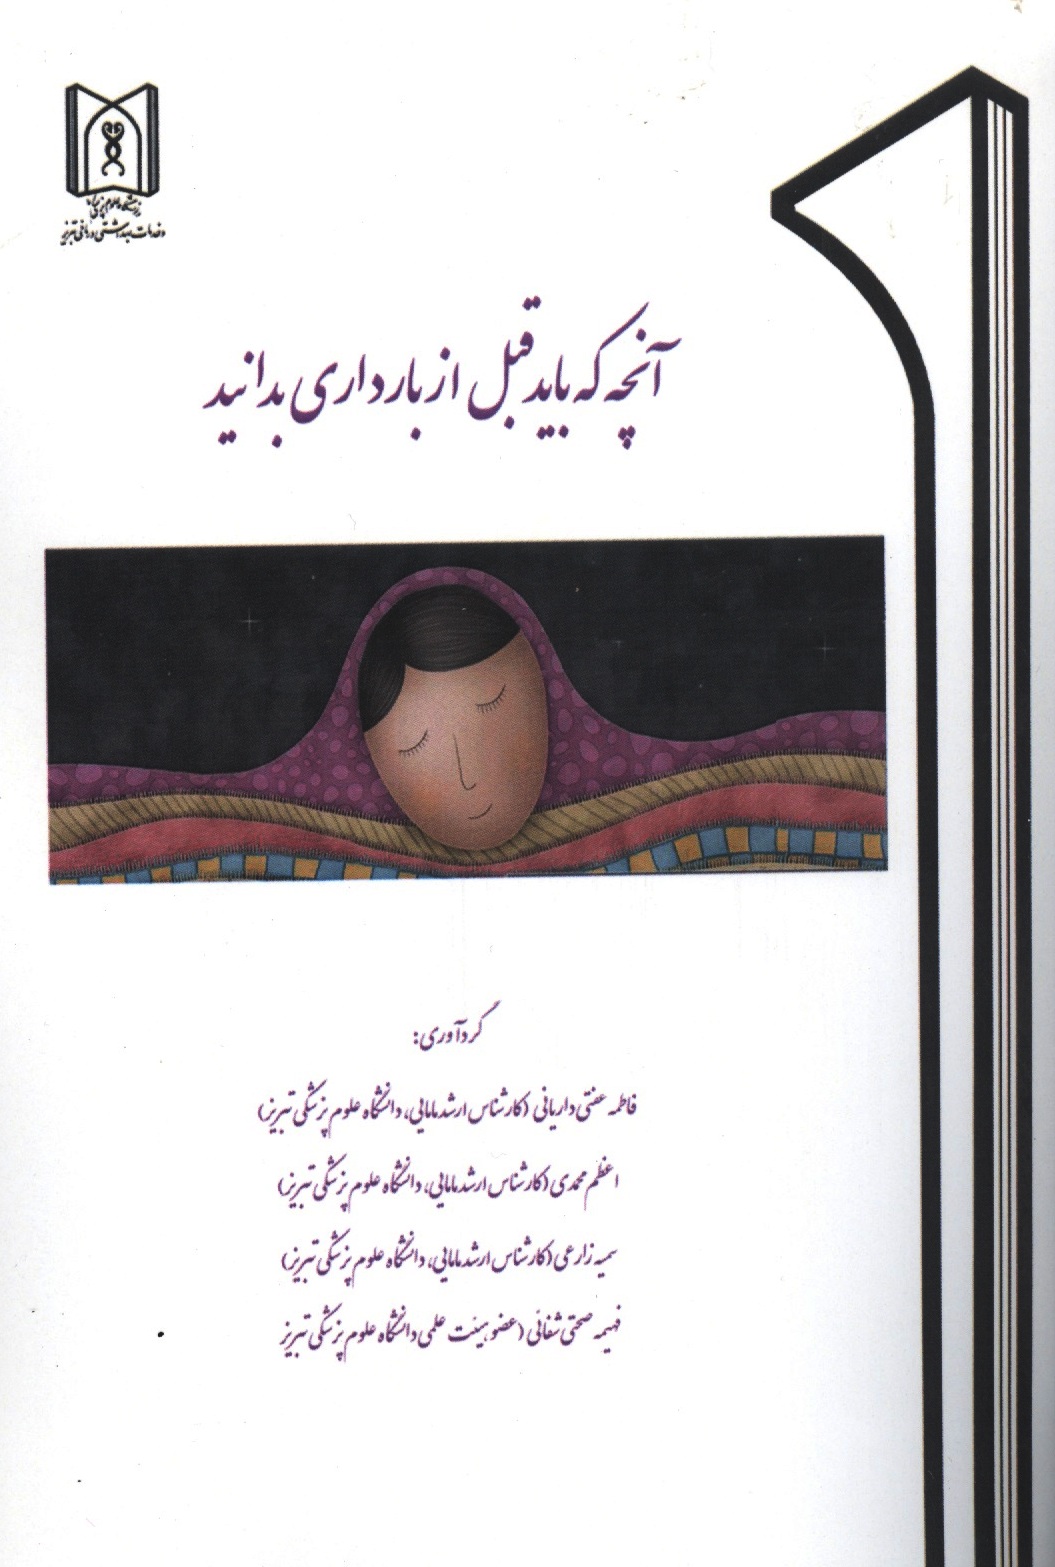 دانشگاه علوم پزشکی
و خدمات بهداشتی درمانی تبریز
آنچه که باید قبل از بارداری بدانید
گردآوری:
فاطمه عفتی داریانی (کارشناس ارشد مامایی، دانشگاه علوم پزشکی تبریز)
اعظم محمدی (کارشناس ارشد مامایی، دانشگاه علوم پزشکی تبریز)
سمیه زارعی (کارشناس ارشد مامایی، دانشگاه علوم پزشکی تبریز)
فهیمه صحتی شفائی (عضو هیئت علمی دانشگاه علوم پزشکی تبریز